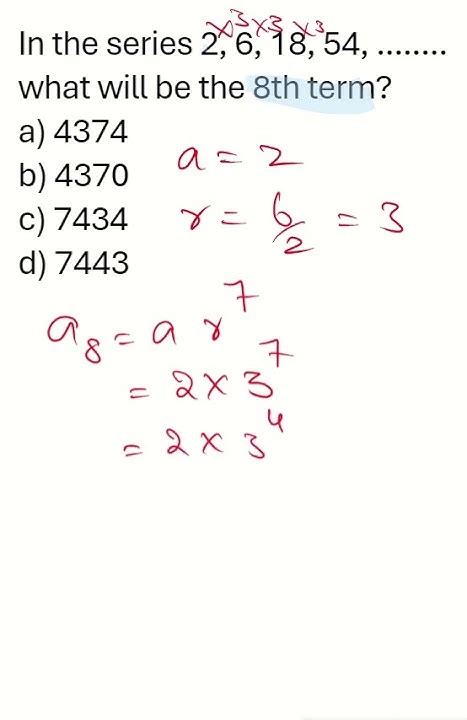 ×3 ×3 ×3
In the series 2, 6, 18, 54, ........
what will be the 8th term?
a) 4374
b) 4370
c) 7434
d) 7443
a = 2
r = 6/2 = 3
a₈ = a r⁷
= 2 × 3⁷
= 2 × 3⁴